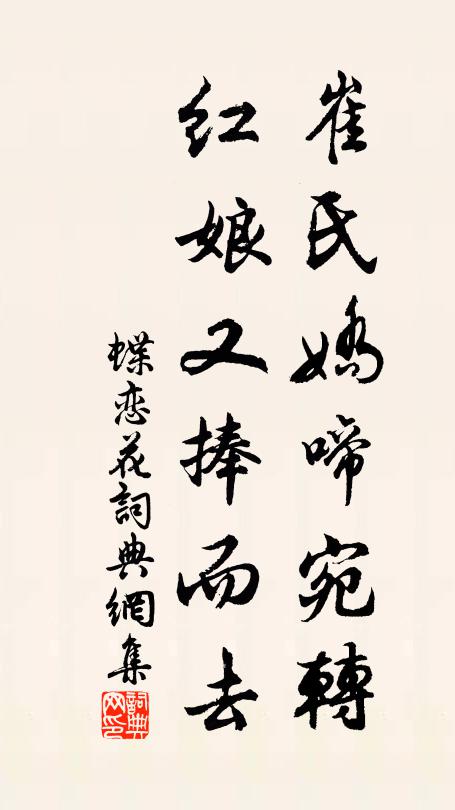 崔氏嬌啼宛轉
紅娘又捧而去
蝶恋花詞典網集
詞典
网印